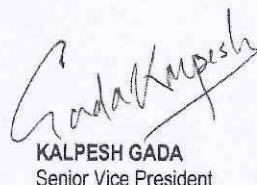 Gada Kalpesh
KALPESH GADA
Senior Vice President